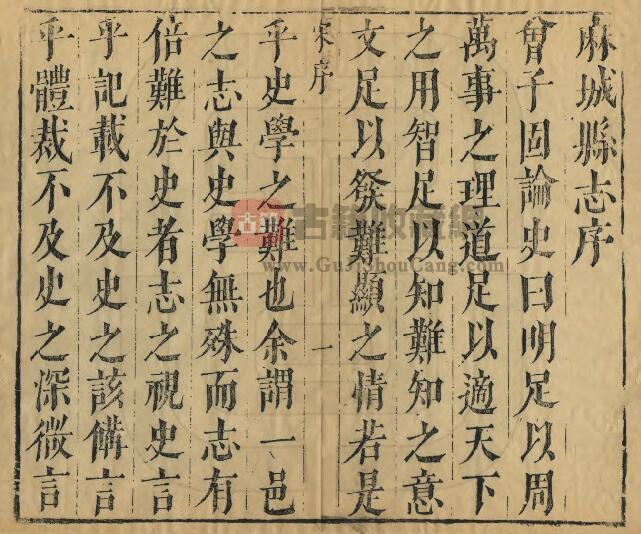 麻城縣志序
曾子固論史曰明足以周
萬事之理道足以適天下
之用智足以知難知之意
文足以發難顯之情若是
宋序
一
乎史學之難也余謂一邑
之志與史學無殊而志有
倍難於史者志之視史言
乎記載不及史之該備言
乎體裁不及史之深微言
古籍
古籍收藏網
www.GuJiShouCang.com